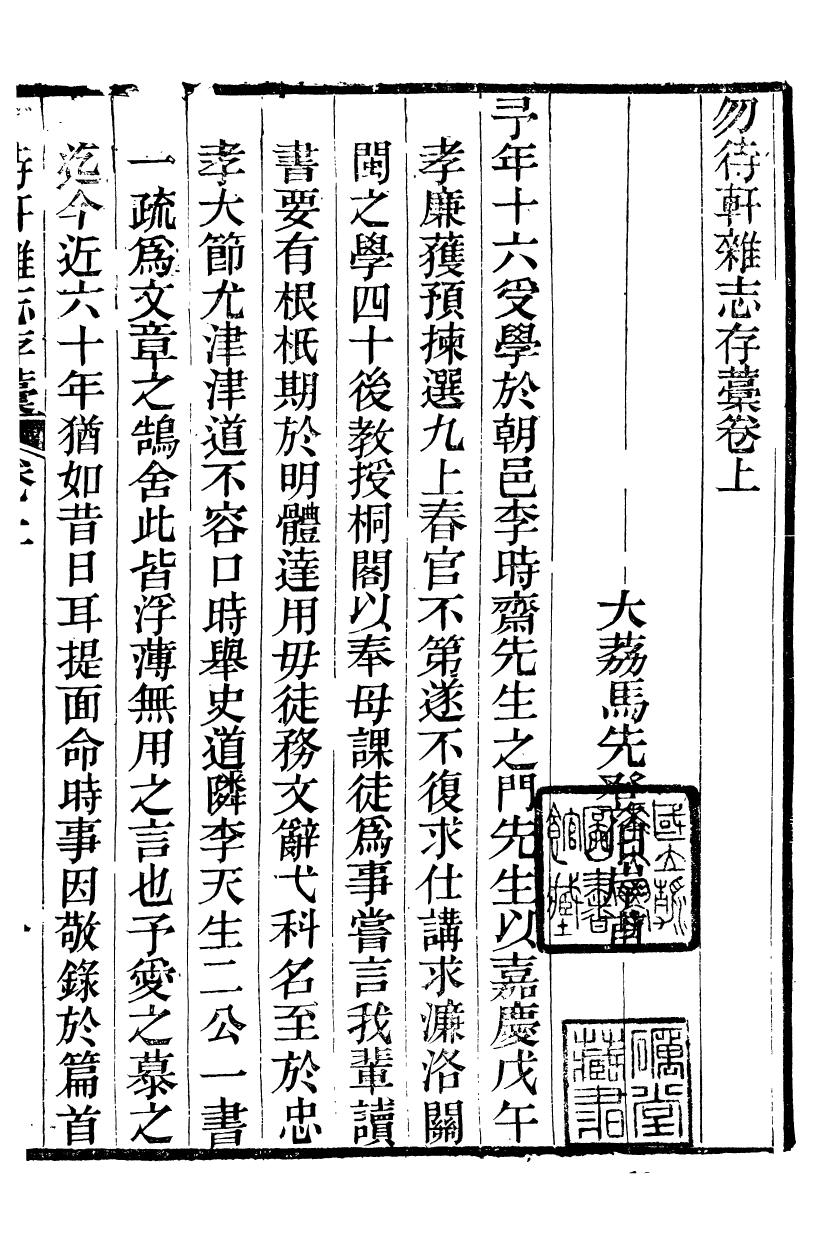 勿待軒雜志存藁卷上
大荔馬先登
予年十六受學於朝邑李時齋先生之門先生以嘉慶戊午
孝廉獲預揀選九上春官不第遂不復求仕講求濂洛關
閩之學四十後教授桐閣以奉母課徒爲事嘗言我輩讀
書要有根柢期於明體達用毋徒務文辭弋科名至於忠
孝大節尤津津道不容口時舉史道隣李天生二公一書
一疏爲文章之鵠舍此皆浮薄無用之言也予愛之慕之
迄今近六十年猶如昔日耳提面命時事因敬錄於篇首
待軒雜志存藁 卷上